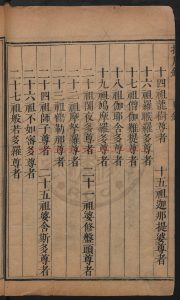 十四祖龍樹尊者　十五祖迦那提婆尊者
十六祖羅睺羅多尊者
十七祖僧伽難提尊者
十八祖伽耶舍多尊者
十九祖鳩摩羅多尊者
二十祖闍夜多尊者　二十一祖婆修盤頭尊者
二十二祖摩拏羅尊者
二十三祖鶴勒那尊者
二十四祖師子尊者　二十五祖婆舍斯多尊者
二十六祖不如密多尊者
二十七祖般若多羅尊者